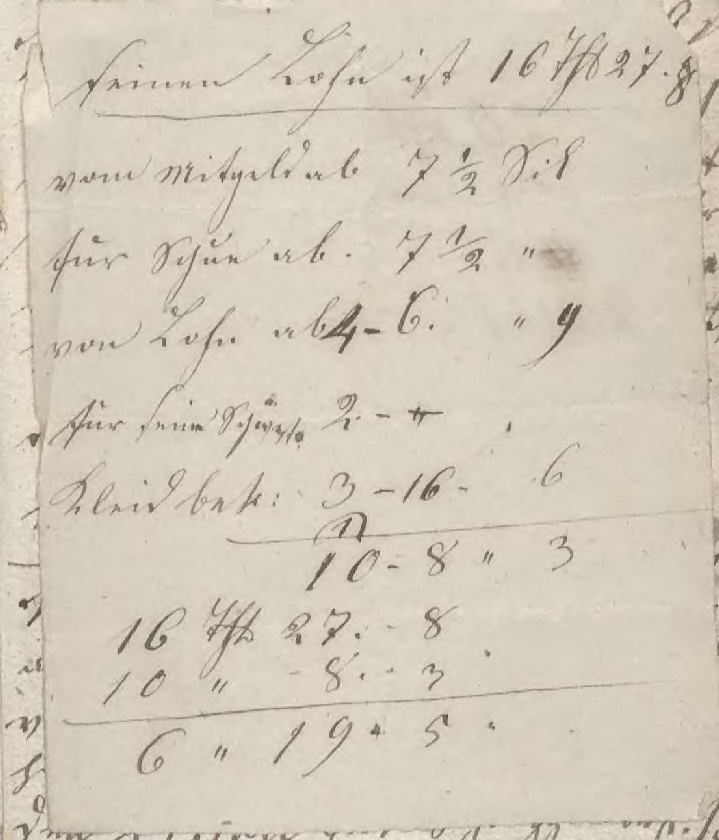 seinen Lohn ist 16 Thl 27. 8
vom Mitgeld ab 7 1/2 Sil
für Schue ab. 7 1/2 "
von Lohn ab 4 - 6. " 9
für seine 2 - "
Kleid bek: 3 - 16 - 6
10 - 8 " 3
16 Thl 27. - 8
10 " - 8. - 3
6 " 19 - 5